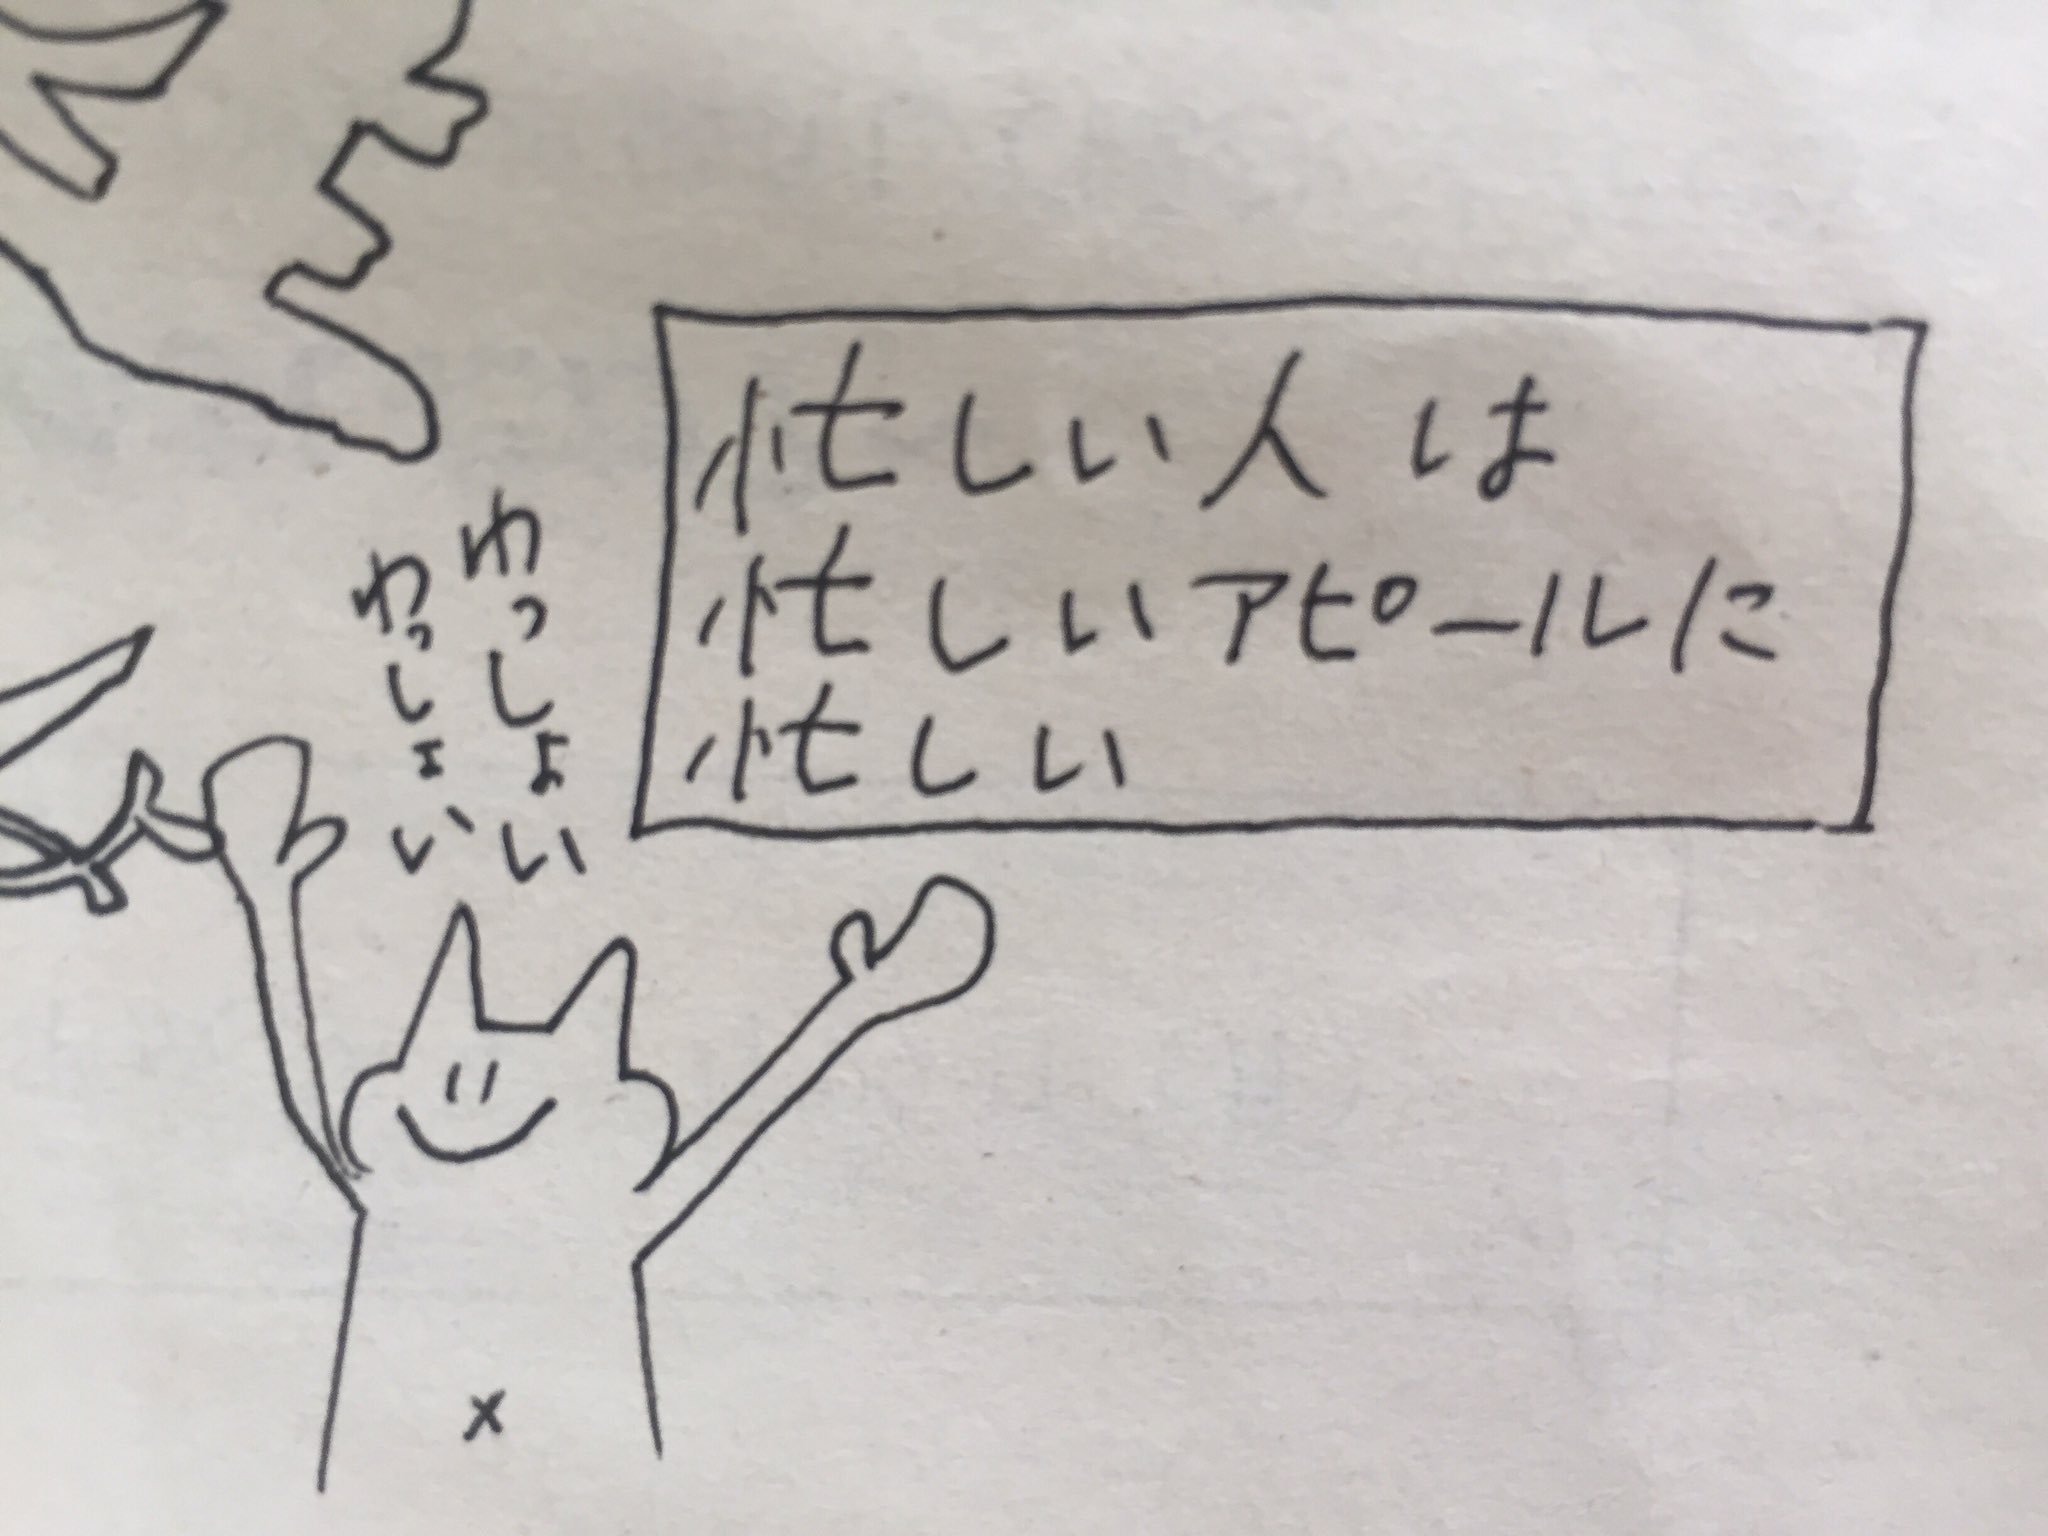 忙しい人は
忙しいアピールに
忙しい
わっしょい
わっしょい